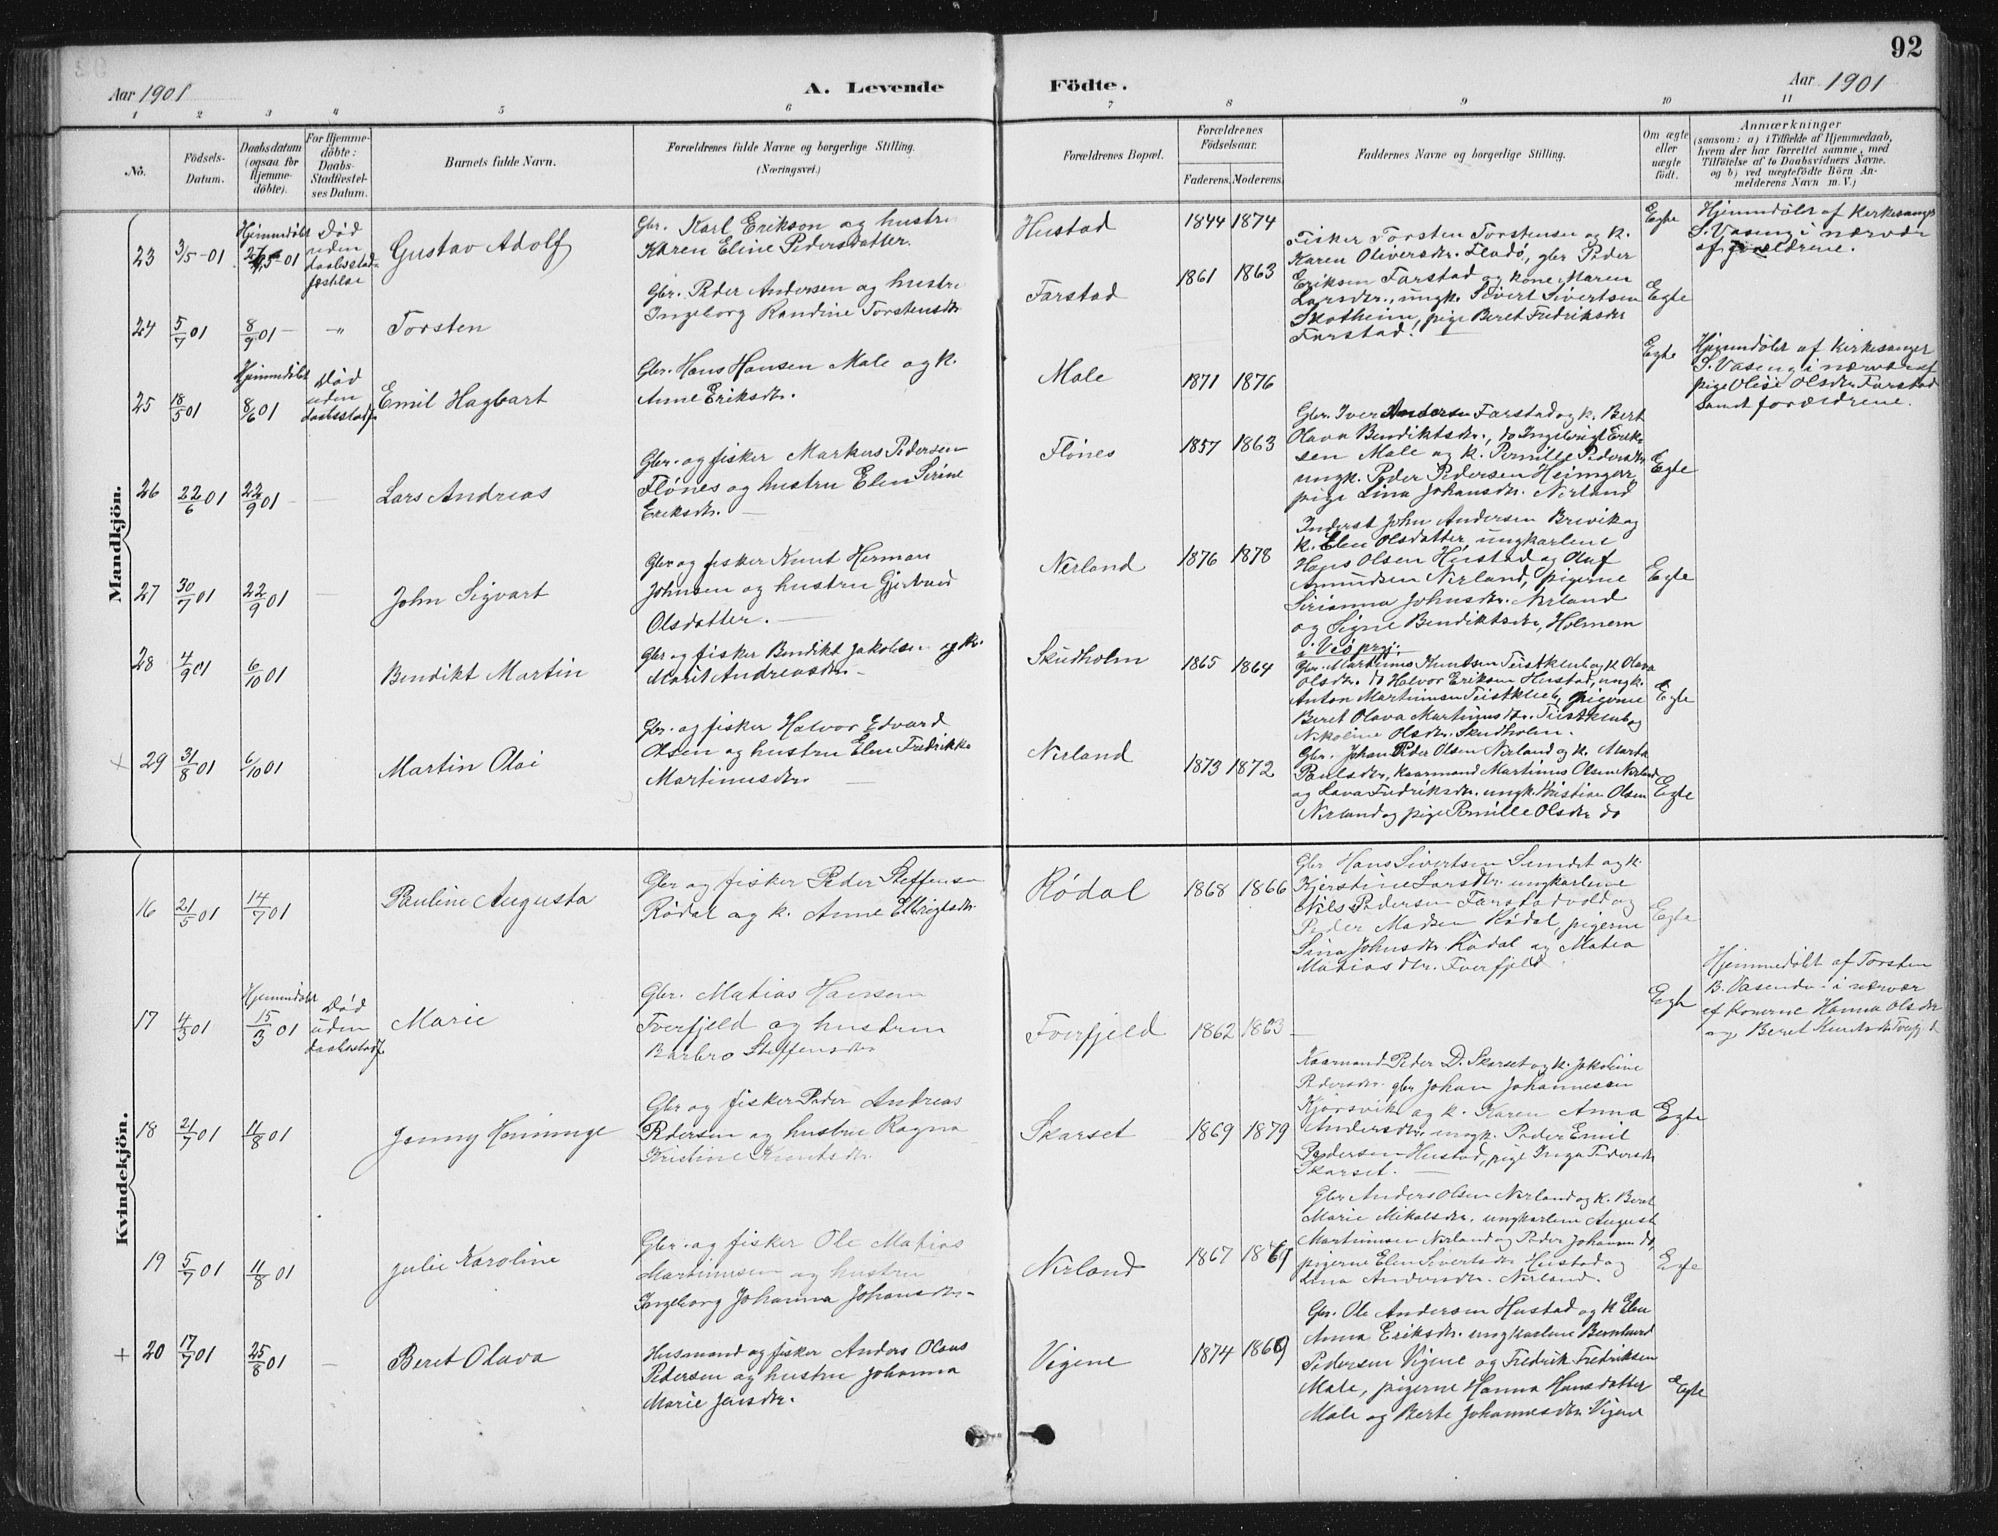 92
Aar 1901
A. Levende
Födte.
Aar 1901
1 2 3 4 5 6 7 8 9 10 11
No.
Födsels-Datum.
Daabsdatum (ogsaa for Hjemme-döbte).
For Hjemme-döbte: Daabs-Stadfæstel-ses Datum.
Barnets fulde Navn.
Forældrenes fulde Navne og borgerlige Stilling.
(Næringsvei.)
Forældrenes Bopæl.
Forældrenes Födselsaar.
Faderens. Moderens.
Faddernes Navne og borgerlige Stilling.
Om ægte eller uægte födt.
Anmærkninger
(saasom: a) i Tilfælde af Hjemmedaab,
hvem der har forrettet samme, med
Tilföielse af to Daabsvidners Navne.
og b) ved uægtefödte Börn An-
melderens Navn m. V.)
Mandkjön.
23 3/5-01 Hjemmdöbt 5-01 Död uden daabsstad-
Gustav Adolf
Gbr. Karl Erikson og hustru
Karen Eline Pedersdatter.
Hustad 1844 1874
Egte
Hjemmdöbt af Kirkesanger
S. Vaseng i nærvær
af forældrene.
24 5/7 01 8/9 01 - "
Torsten
Gbr. Peder Andersen og hustru
Ingeborg Randine Torstensdtr
Farstad 1861 1863
Fisker Torsten Torstensen og k.
Karen Oliversdtr. Fladö, gbr Peder
Eriksen Farstad og kone Maren
Larsdtr., ungk. Sivert Sivertsen
Skotheim, pige Beret Fredriksdtr
Farstad.
Egte
25 18/5 01 Hjemmdöbt 8/6 01 Död uden daabsstadf.
Emil Hagbart
Gbr. Hans Hansen Male og k.
Anne Eriksdtr.
Male 1871 1876
Egte
Hjemmdöbt af Kirkesanger
S. Vaseng i nærvær af
pige Oline Olsdtr Farstad
samt forældrene.
26 22/6 01 22/9 01 -
Lars Andreas
Gbr. og fisker Markus Pedersen
Flönes og hustru Elen Sirine
Eriksdtr. -
Flönes 1857 1863
Gbr. Iver Andersen Farstad og k. Bert
Olava Bendiktsdtr., do Ingebrigt Erik-
sen Male og k. Pernille Pedersdtr
ungk. Peder Pedersen Heimgar,
pige Lina Johansdtr. Nerland
Egte
27 30/7 01 22/9 01 -
John Sigvart
Gbr og fisker Knut Herman
Johnsen og hustru Gjertrud
Olsdatter. -
Nerland 1876 1878
Inderst John Andersen Brevik og
k. Elen Olsdatter, ungkarlene
Hans Olsen Hustad og Olaf
Amundsen Nerland, pigerne
Sirianna Johnsdtr. Nerland
og Signe Bendiktsdtr, Holmem
i Veis prgj.
Egte
28 4/9 01 6/10 01
Bendikt Martin
Gbr og fisker Bendikt Jakobsen og k.
Marit Andreasdtr -
Skudholm 1865 1864
Gbr. Martinus Knutsen Teistklub og k Olava
Olsdtr. do Halvor Eriksen Hustad, ungk.
Anton Martinusen Teistklub, pigerne
Beret Olava Martinusdtr. Teistklub og
Nikoline Olsdtr. Skudholm.
Egte
+ 29 31/8 01 6/10 01
Martin Olai
Gbr. og fisker Halvor Edvard
Olsen og hustru Elen Fredrikke
Martinusdtr. -
Nerland 1873 1872
Gbr. Johan Peder Olsen Nerland og k. Marta
Paulsdtr, kaarmand Martinus Olsen Nerland
og Lava Fredriksdtr. ungk. Kristian Olsen
Nerland og pige Pernille Olsdtr do
Egte
Kvindekjön.
16 21/5 01 14/7 01
Pauline Augusta
Gbr og fisker Peder Steffensen
Rödal og k. Anne Elbrigtsdtr.
Rödal 1868 1866
Gbr Hans Sivertsen Sundet og k.
Kjerstine Larsdtr. ungkarlene
Nils Pedersen Farstadvold og
Peder Madsen Rödal, pigerne
Lina Johnsdtr. Rödal og Matea
Matiasdtr. Tverfjeld
Egte
17 4/3 01 Hjemmdöbt 15/3 01 Död uden daabsstadf
Marie
Gbr. Matias Hansen
Tverfjeld og hustru
Barbro Steffensdtr
Tverfjeld 1862 1863 -
Egte
Hjemmedöbt af Torsten
B. Vasenden i nærvær
af konerne Hanna Olsdtr
og Beret Knutsdtr Tverfjeld
18 21/7 01 11/8 01
Jenny Henninge
Gbr og fisker Peder Andreas
Pedersen og hustru Ragna
Kristine Knutsdtr.
Skarset 1869 1879
Kaarmand Peder D. Skarset og k. Jakobine
Pedersdtr. gbr Johan Johannessen
Kjörsvik og k. Karen Anna
Andersdtr. ungk. Peder Emil
Pedersen Hustad, pige Inga Pedersdtr
Skarset. -
Egte
19 5/7 01 11/8 01
Julie Karoline
Gbr. og fisker Ole Matias
Martinussen og hustru
Ingeborg Johanna Johansdtr. -
Nerland 1867 1869
Gbr Anders Olsen Nerland og k. Beret
Marie Mikalsdtr. ungkarlene August
Martinusen Nerland og Peder Johansen do,
pigerne Elen Sivertsdtr Hustad og
Lina Andersdtr. Nerland.
Egte
+ 20 17/7 01 25/8 01 -
Beret Olava
Husmand og fisker Anders Olaus
Pedersen og hustru Johanna
Marie Jensdtr.
Vigene 1874 1869
Gbr. Ole Andersen Hustad og k Elen
Anna Eriksdtr. ungkarlene Bernhard
Pedersen Vigene og Fredrik Fredriksen
Male, pigerne Hanna Hansdatter
Male og Berte Johannesdtr. Vigene
Egte